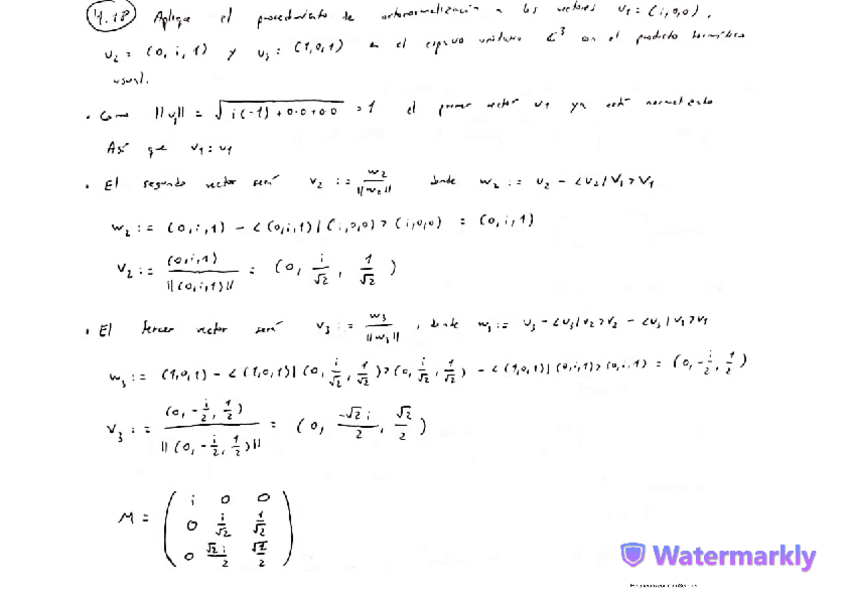 4.18 Aplique el procedimiento de ortonormalización a los vectores u₁ = (i,0,0),
u₂ = (0, i, 1) y u₃ = (1,0,1) en el espacio unitario ℂ³ con el producto hermítico
usual.
· Como ||u₁|| = √(i(-i) + 0·0 + 0·0) = 1 el primer vector u₁ ya está normalizado
Así que v₁ = u₁
· El segundo vector será v₂ := w₂/||w₂|| donde w₂ := u₂ - <u₂|v₁>v₁
w₂ := (0,i,1) - <(0,i,1)|(i,0,0)>(i,0,0) = (0,i,1)
v₂ := (0,i,1)/||(0,i,1)|| = (0, i/√2, 1/√2)
· El tercer vector será v₃ := w₃/||w₃||, donde w₃ := u₃ - <u₃|v₂>v₂ - <u₃|v₁>v₁
w₃ := (1,0,1) - <(1,0,1)|(0, i/√2, 1/√2)>(0, i/√2, 1/√2) - <(1,0,1)|(0,i,1)>(0,i,1) = (0, -i/2, 1/2)
v₃ := (0, -i/2, 1/2)/||(0, -i/2, 1/2)|| = (0, -√2 i/2, √2/2)
M = ( i 0 0
0 i/√2 1/√2
0 √2 i/2 √2/2 )
Watermarkly